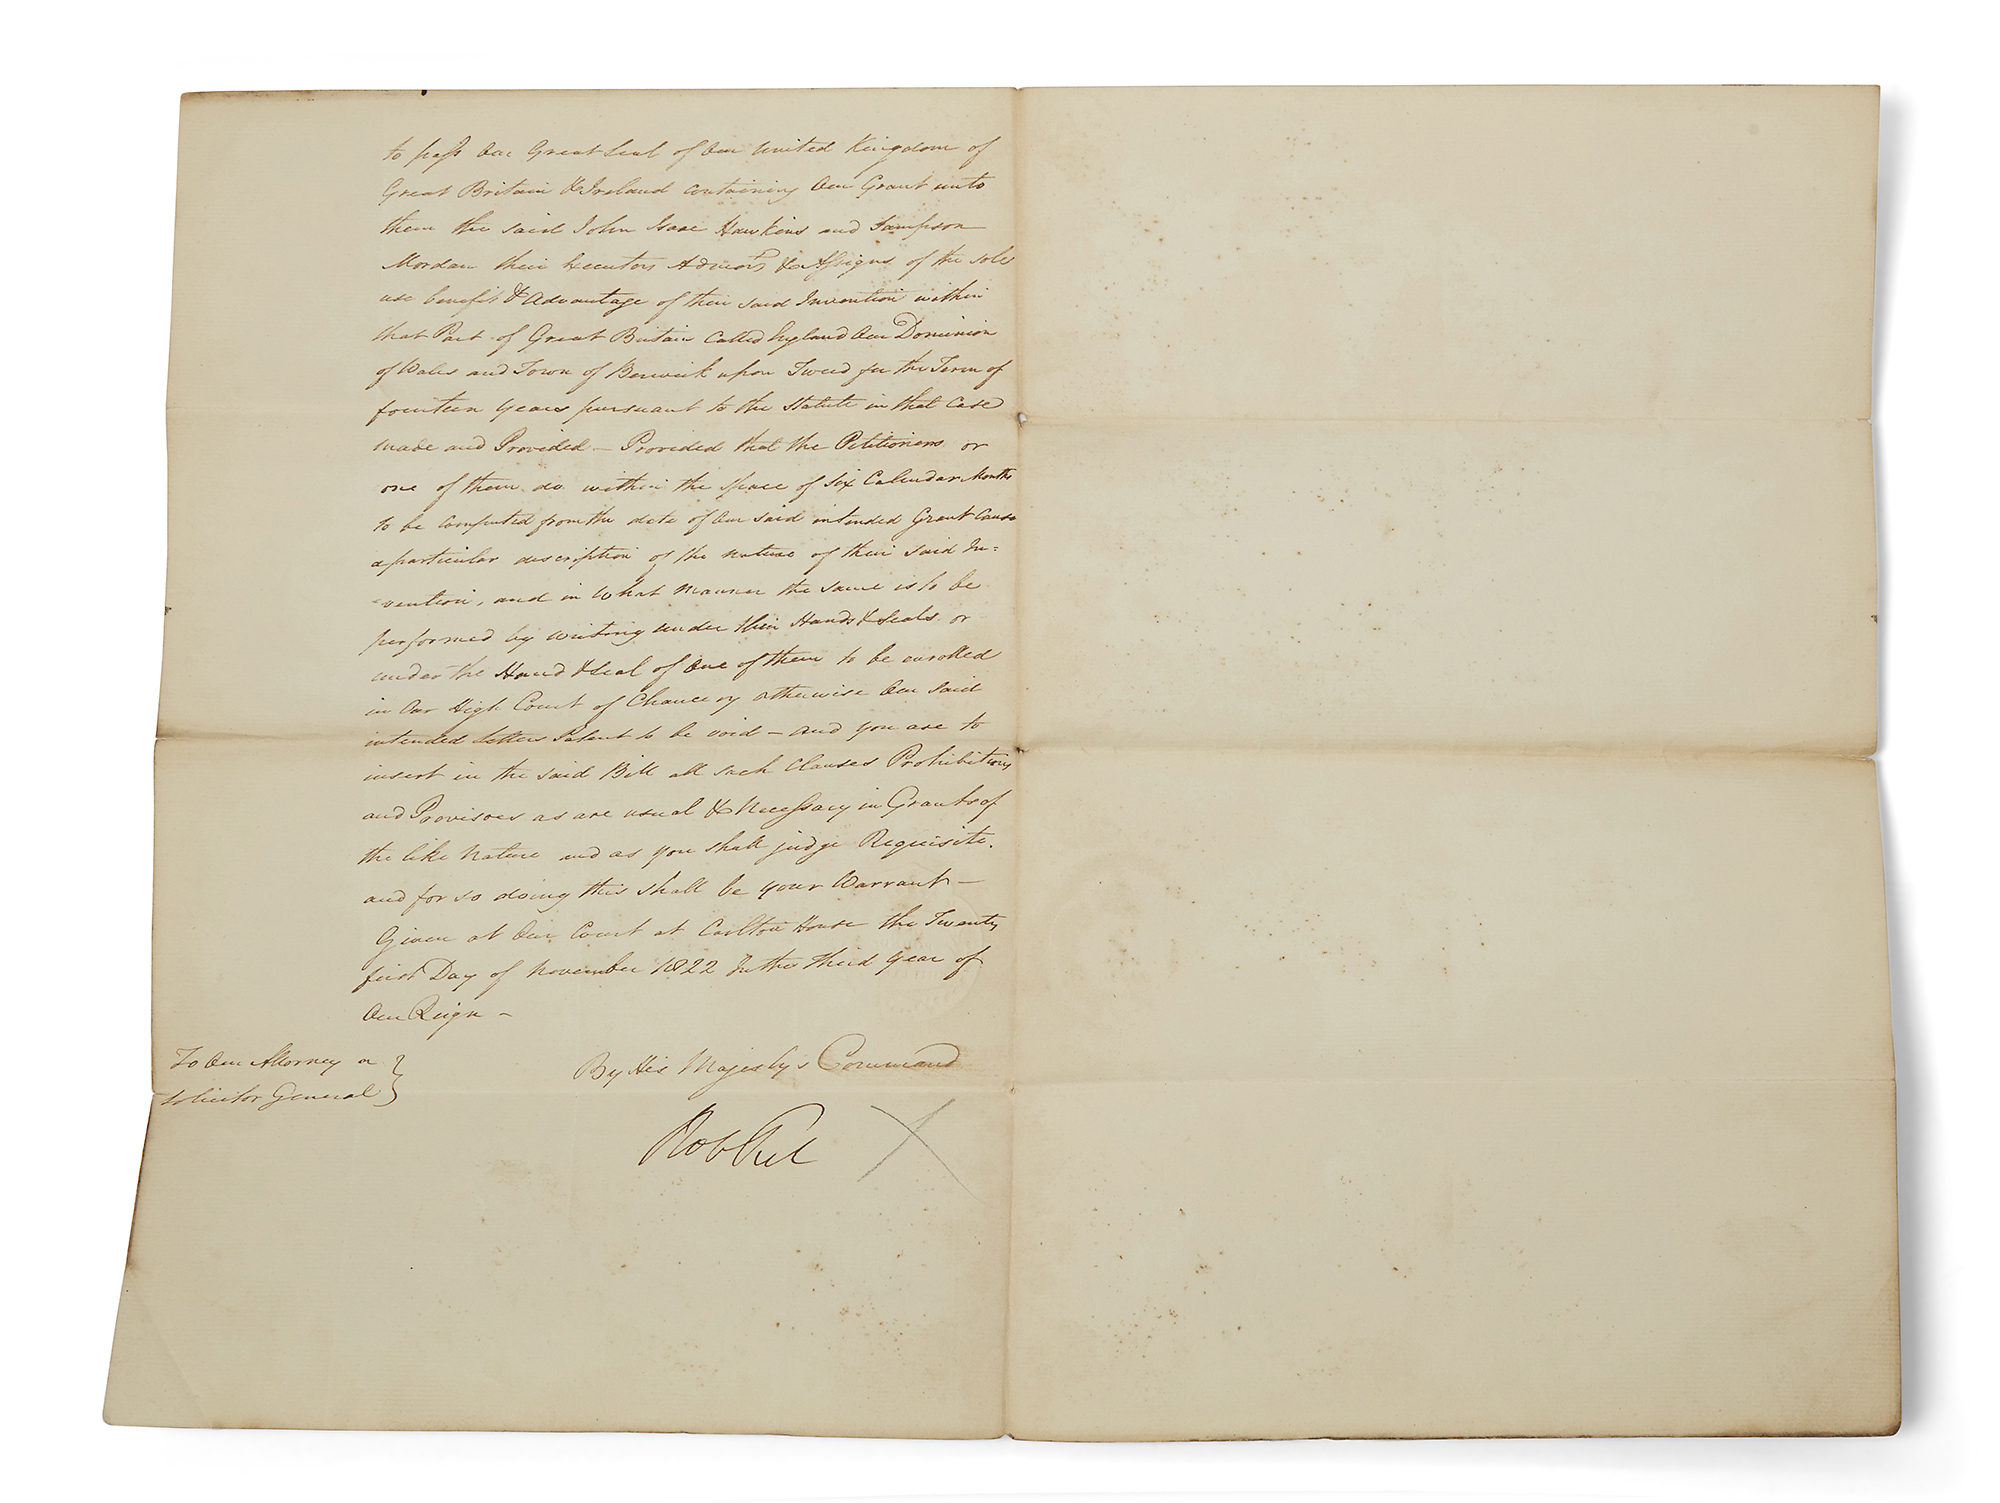 to pass Our Great Seal of Our United Kingdom of
Great Britain & Ireland containing Our Grant unto
them the said John Isaac Hawkins and Sampson
Mordan their Executors Admors & Assigns of the sole
use benefit & Advantage of their said Invention within
that Part of Great Britain Called England Our Dominion
of Wales and Town of Berwick upon Tweed for the Term of
fourteen years pursuant to the Statute in that Case
made and Provided – Provided that the Petitioners or
one of them do within the space of six Calendar Months
to be computed from the date of Our said intended Grant Cause
a particular description of the nature of their said In=
=vention, and in What manner the same is to be
performed by writing under their Hands & Seals or
under the Hand & Seal of One of them to be enrolled
in Our High Court of Chancery otherwise Our said
intended Letters Patent to be void – and you are to
insert in the said Bill all such Clauses Prohibitions
and Provisoes as are usual & Necessary in Grants of
the like Nature and as you shall judge Requisite.
and for so doing this shall be your Warrant –
Given at Our Court at Carlton House the Twenty
first Day of November 1822 In the third year of
Our Reign –
To Our Attorney or }
Solicitor General }
By His Majesty's Command
Rob Peel